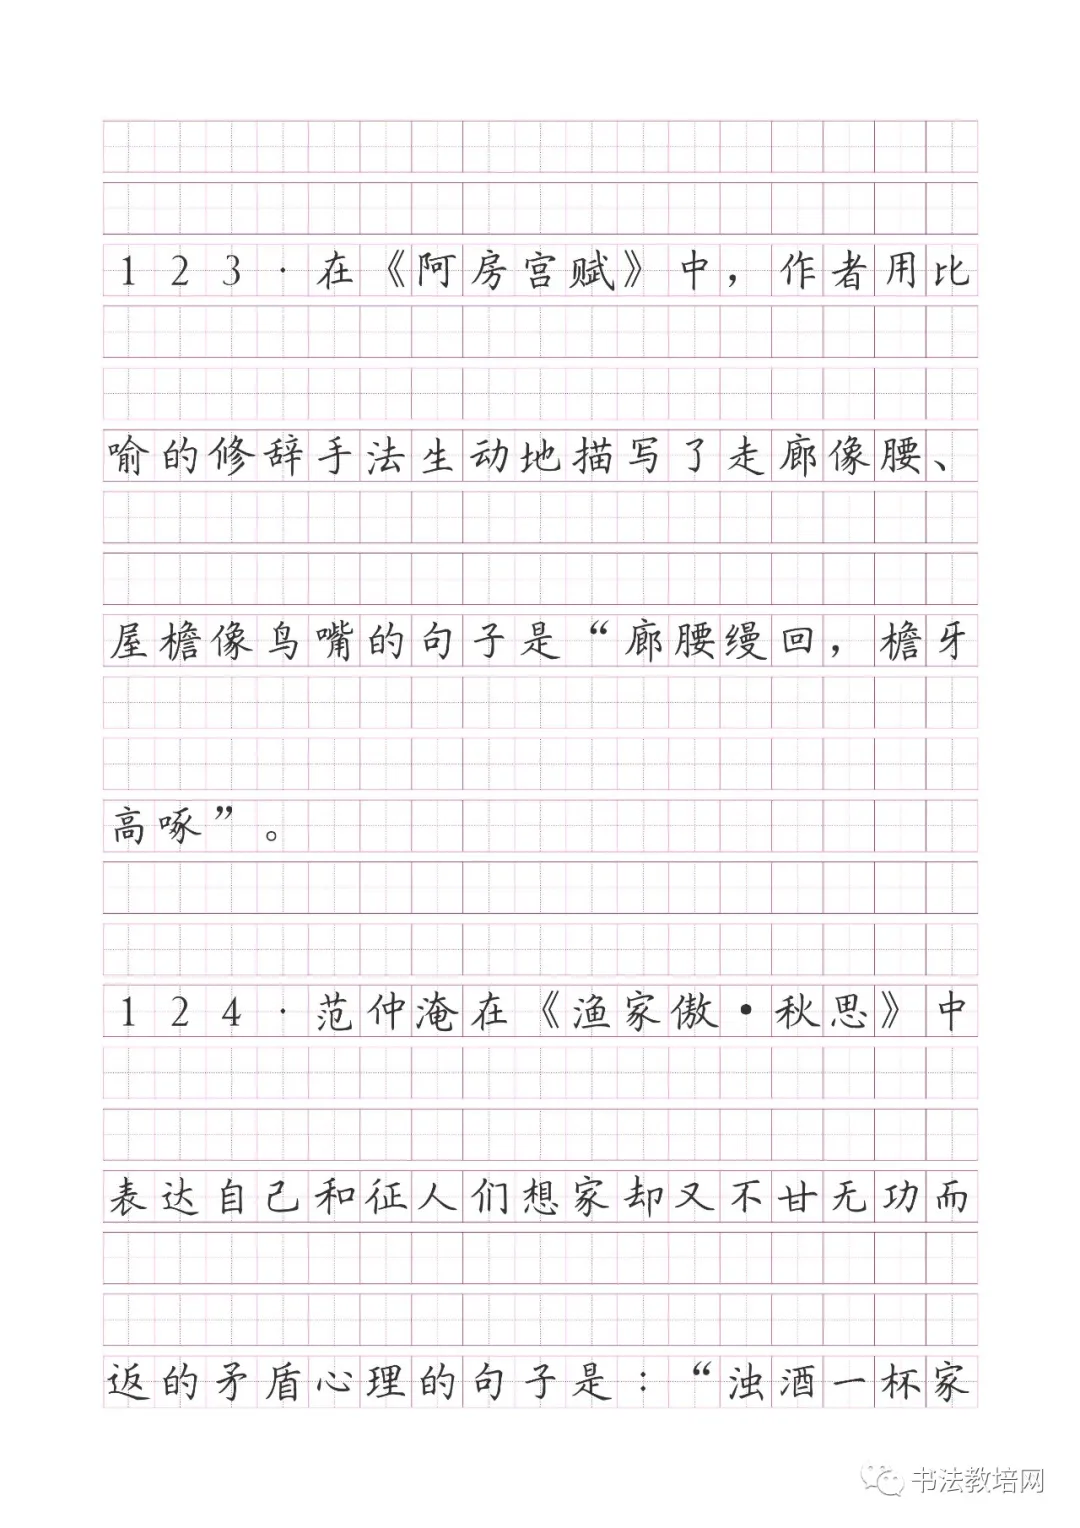 123·在《阿房宫赋》中，作者用比
喻的修辞手法生动地描写了走廊像腰、
屋檐像鸟嘴的句子是“廊腰缦回，檐牙
高啄”。
124·范仲淹在《渔家傲·秋思》中
表达自己和征人们想家却又不甘无功而
返的矛盾心理的句子是：“浊酒一杯家
书法教培网